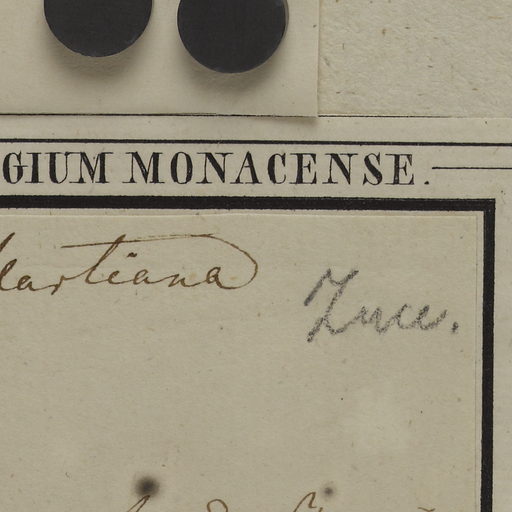 GIUM MONACENSE.
Martiana
Zucc.